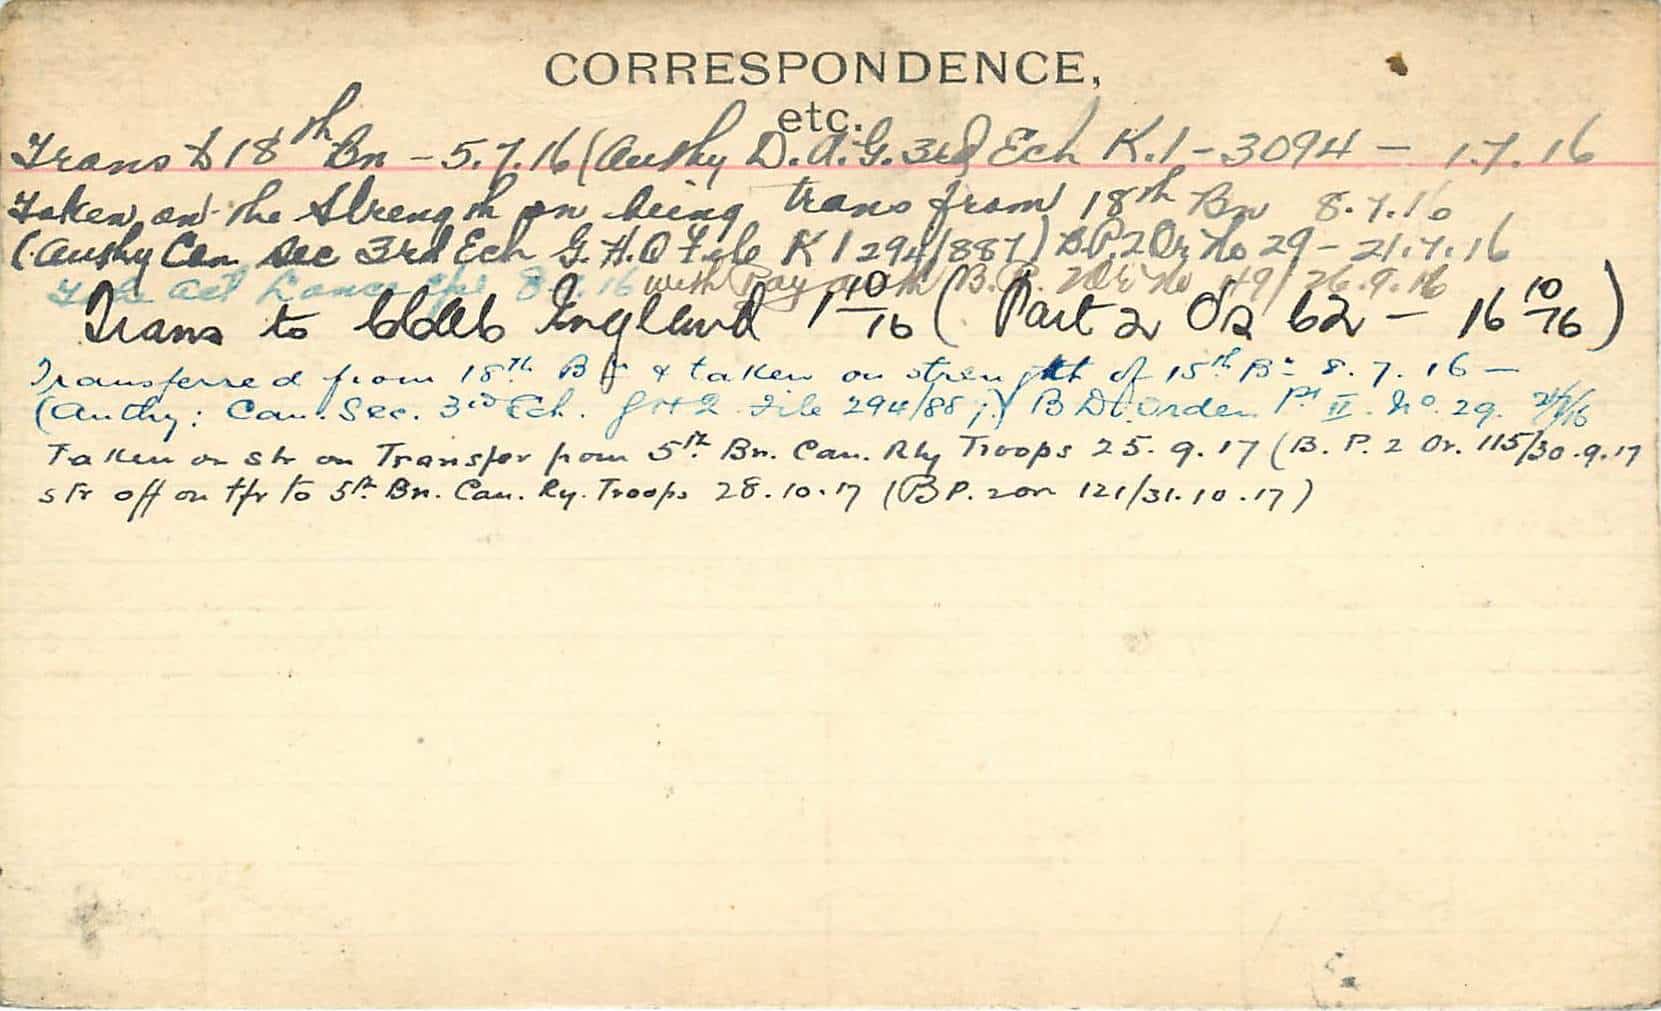 CORRESPONDENCE,
etc.
Trans to 18th Bn - 5.7.16 (Authy D.A.G. 3rd Ech K.1 - 3094 - 1.7.16
Taken on the Strength on being trans from 18th Bn 8.7.16
(Authy Can Sec 3rd Ech G.H.Q File K1 294/887) B.P.2 Or No 29 - 21.7.16
To be Act Lance Cpl 8.9.16 with Pay B.P. 2 Or No 49/26.9.16
Trans to England 1 10/16 (Part 2 Os 62 - 16 10/16)
Transferred from 18th Bn & taken on strength of 15th Bn 8.7.16 -
(Authy: Can. Sec. 3rd Ech. GHQ File 294/887) B Dr. Order Pt II. No. 29. 21/7/16
Taken on str on Transfer from 5th Bn. Can. Rly Troops 25.9.17 (B.P. 2 Or. 115/30.9.17
str off on tfr to 5th Bn. Can. Ry. Troops 28.10.17 (BP. 2 Or 121/31.10.17)